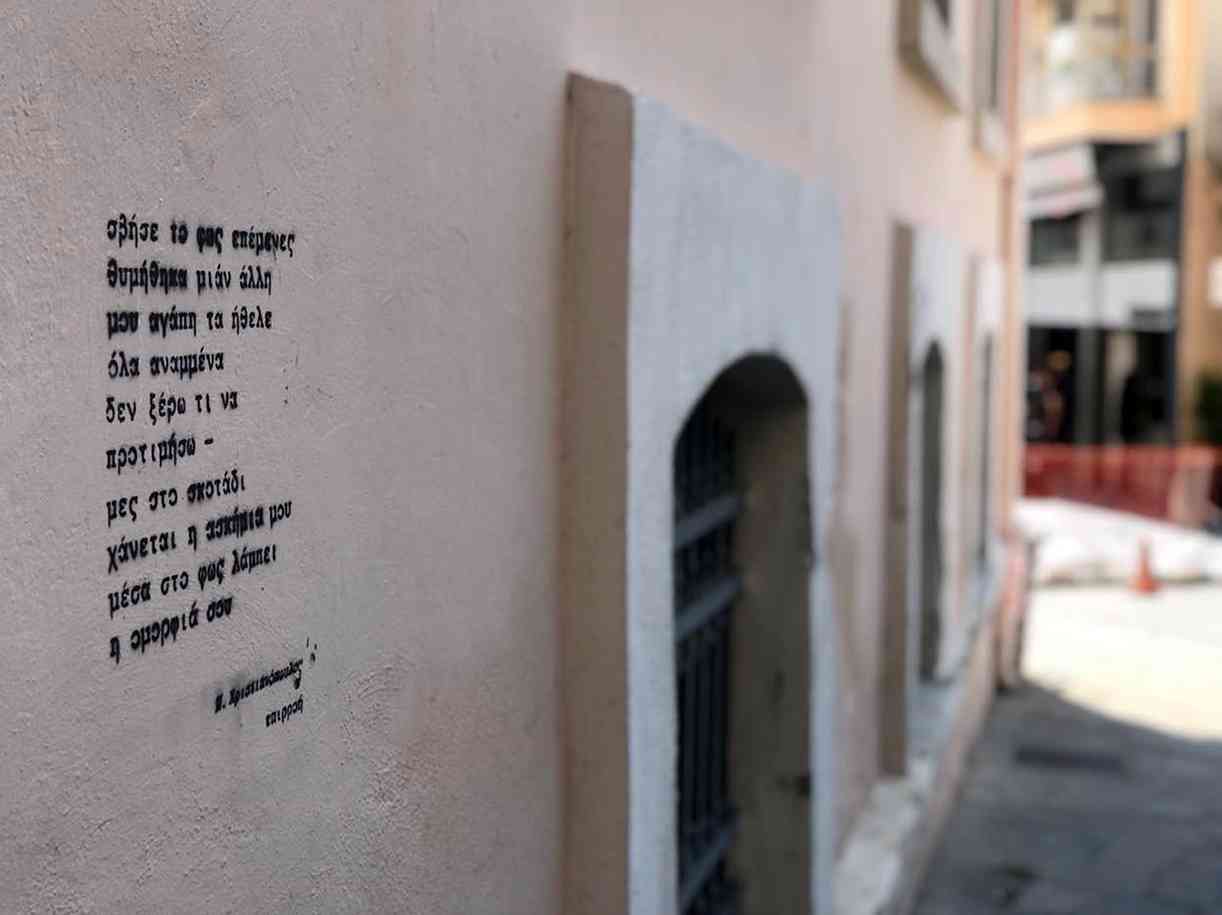 σβήσε το φως επέμενες
θυμήθηκα μιάν άλλη
μου αγάπη τα ήθελε
όλα αναμμένα
δεν ξέρω τι να
προτιμήσω -
μες στο σκοτάδι
χάνεται η ασκήμια μου
μέσα στο φως λάμπει
η ομορφιά σου
Ν. Χριστιανόπουλος